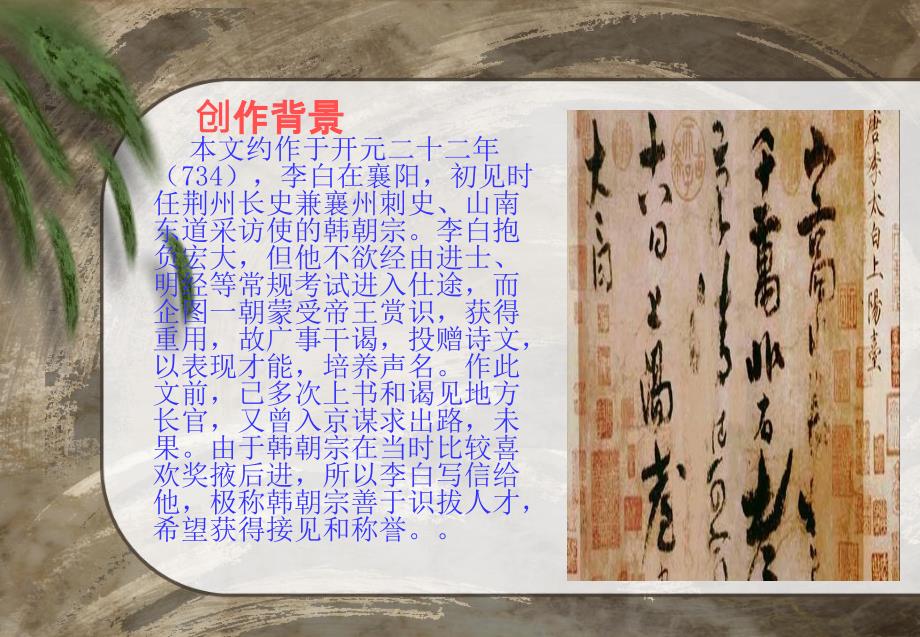 创作背景
本文约作于开元二十二年
（734），李白在襄阳，初见时
任荆州长史兼襄州刺史、山南
东道采访使的韩朝宗。李白抱
负宏大，但他不欲经由进士、
明经等常规考试进入仕途，而
企图一朝蒙受帝王赏识，获得
重用，故广事干谒，投赠诗文，
以表现才能，培养声名。作此
文前，己多次上书和谒见地方
长官，又曾入京谋求出路，未
果。由于韩朝宗在当时比较喜
欢奖掖后进，所以李白写信给
他，极称韩朝宗善于识拔人才，
希望获得接见和称誉。。
唐李太白上陽臺
山高
千萬
十八日上陽臺書